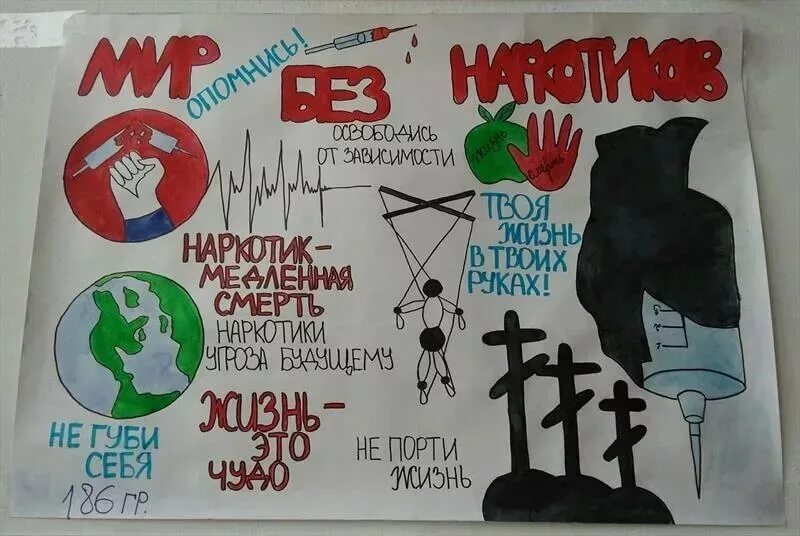 МИР
ОПОМНИСЬ!
БЕЗ
НАРКОТИКОВ
ОСВОБОДИСЬ
ОТ ЗАВИСИМОСТИ
ЖИЗНЬ
СМЕРТЬ
ТВОЯ
ЖИЗНЬ
В ТВОИХ
РУКАХ!
НАРКОТИК -
МЕДЛЕННАЯ
СМЕРТЬ
НАРКОТИКИ
УГРОЗА БУДУЩЕМУ
ЖИЗНЬ -
ЭТО
ЧУДО
НЕ ПОРТИ
ЖИЗНЬ
НЕ ГУБИ
СЕБЯ
186 ГР.